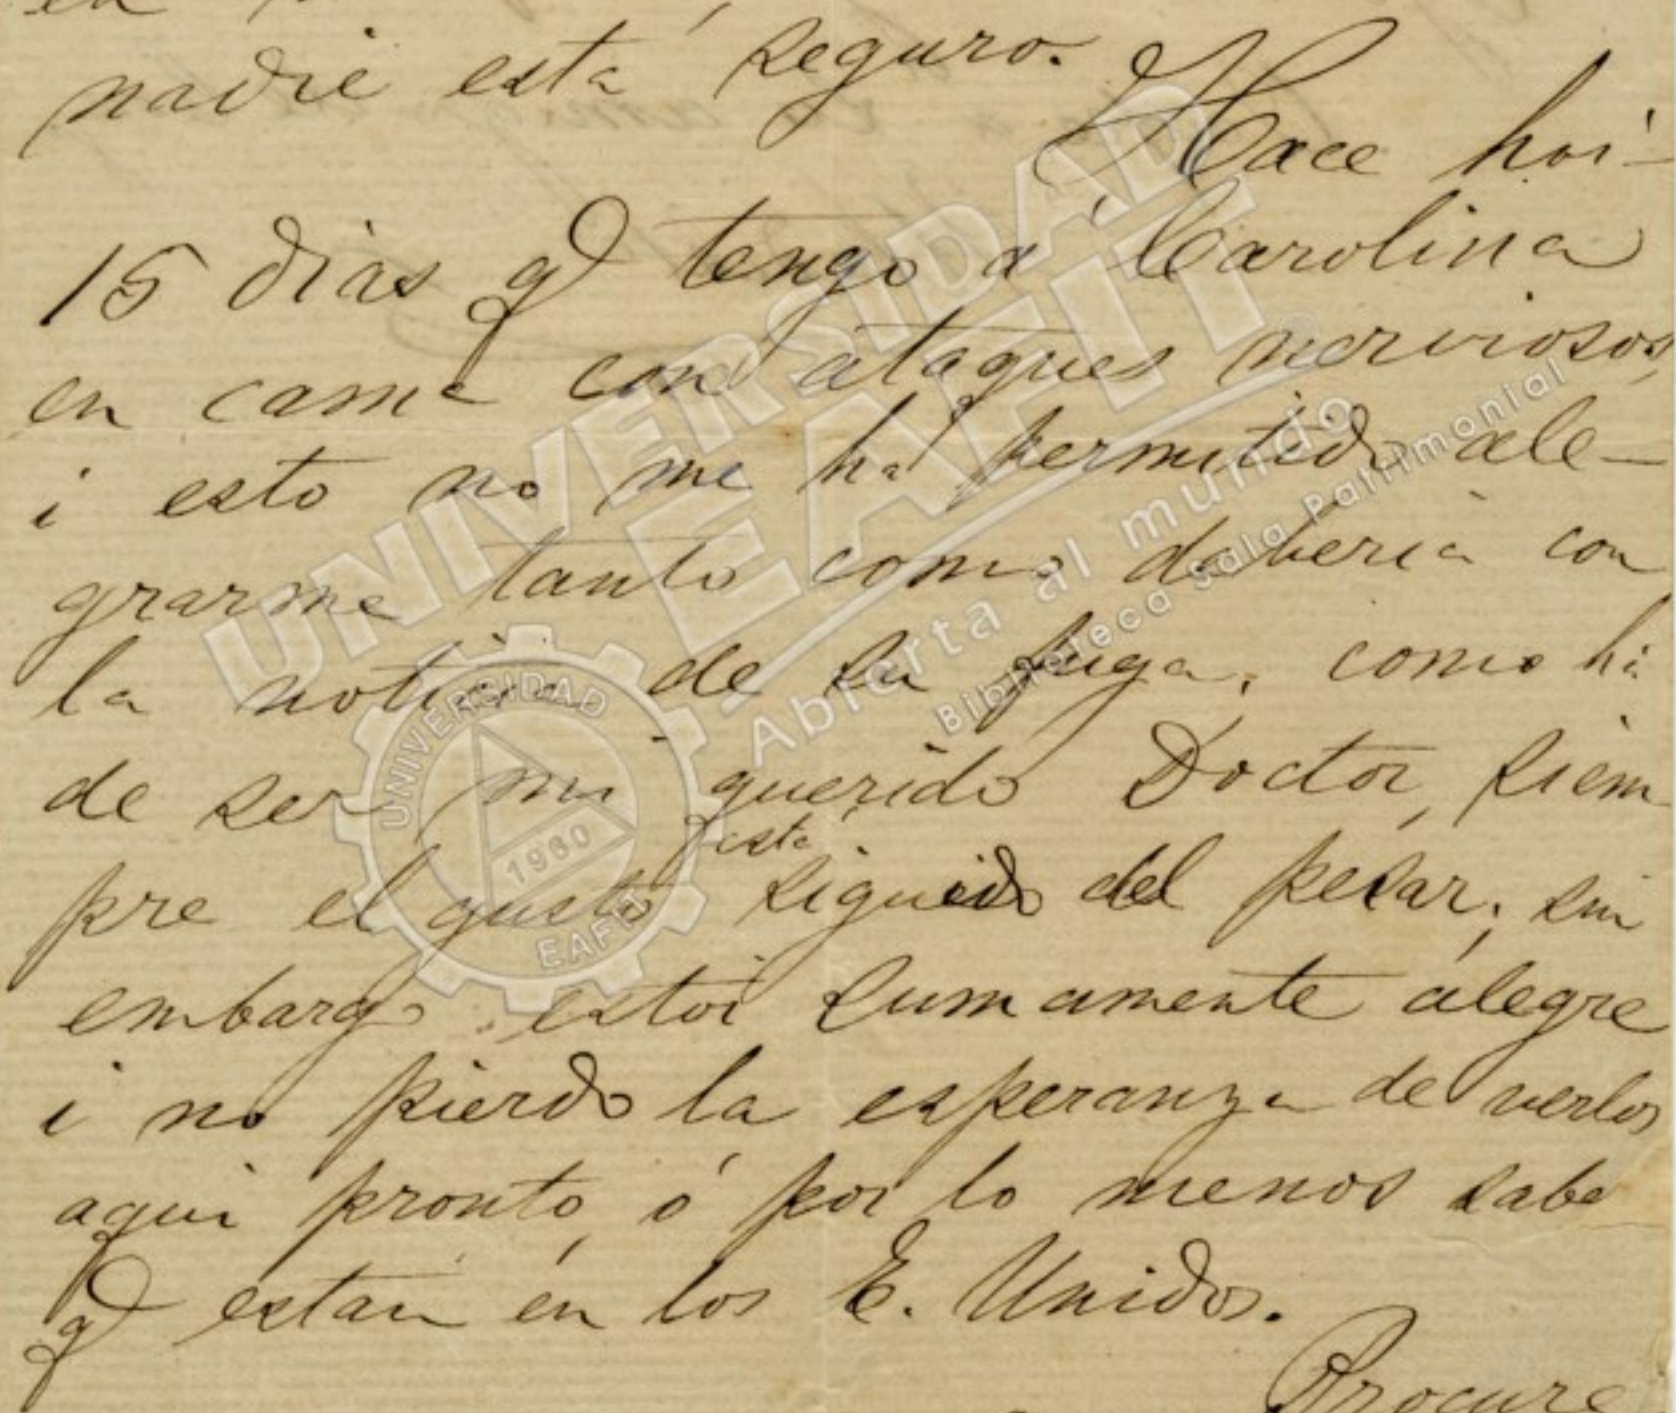 en
nadie está seguro.
Hace hoi
15 dias q tengo á Carolina
en cama con ataques nerviosos,
i esto no me há permitido ale-
grarme tanto como deberia con
la noticia de su fuga, como há
de ser mi querido Doctor, siem-
está
pre el gusto seguido del pesar; sin
embargo estoi sumamente alegre
i no pierdo la esperanza de verlos
aqui pronto, ó por lo menos sabe
q están en los E. Unidos.
Procure
UNIVERSIDAD
EAFIT
Abierta al mundo
Biblioteca Sala Patrimonial
UNIVERSIDAD
1960
EAFIT